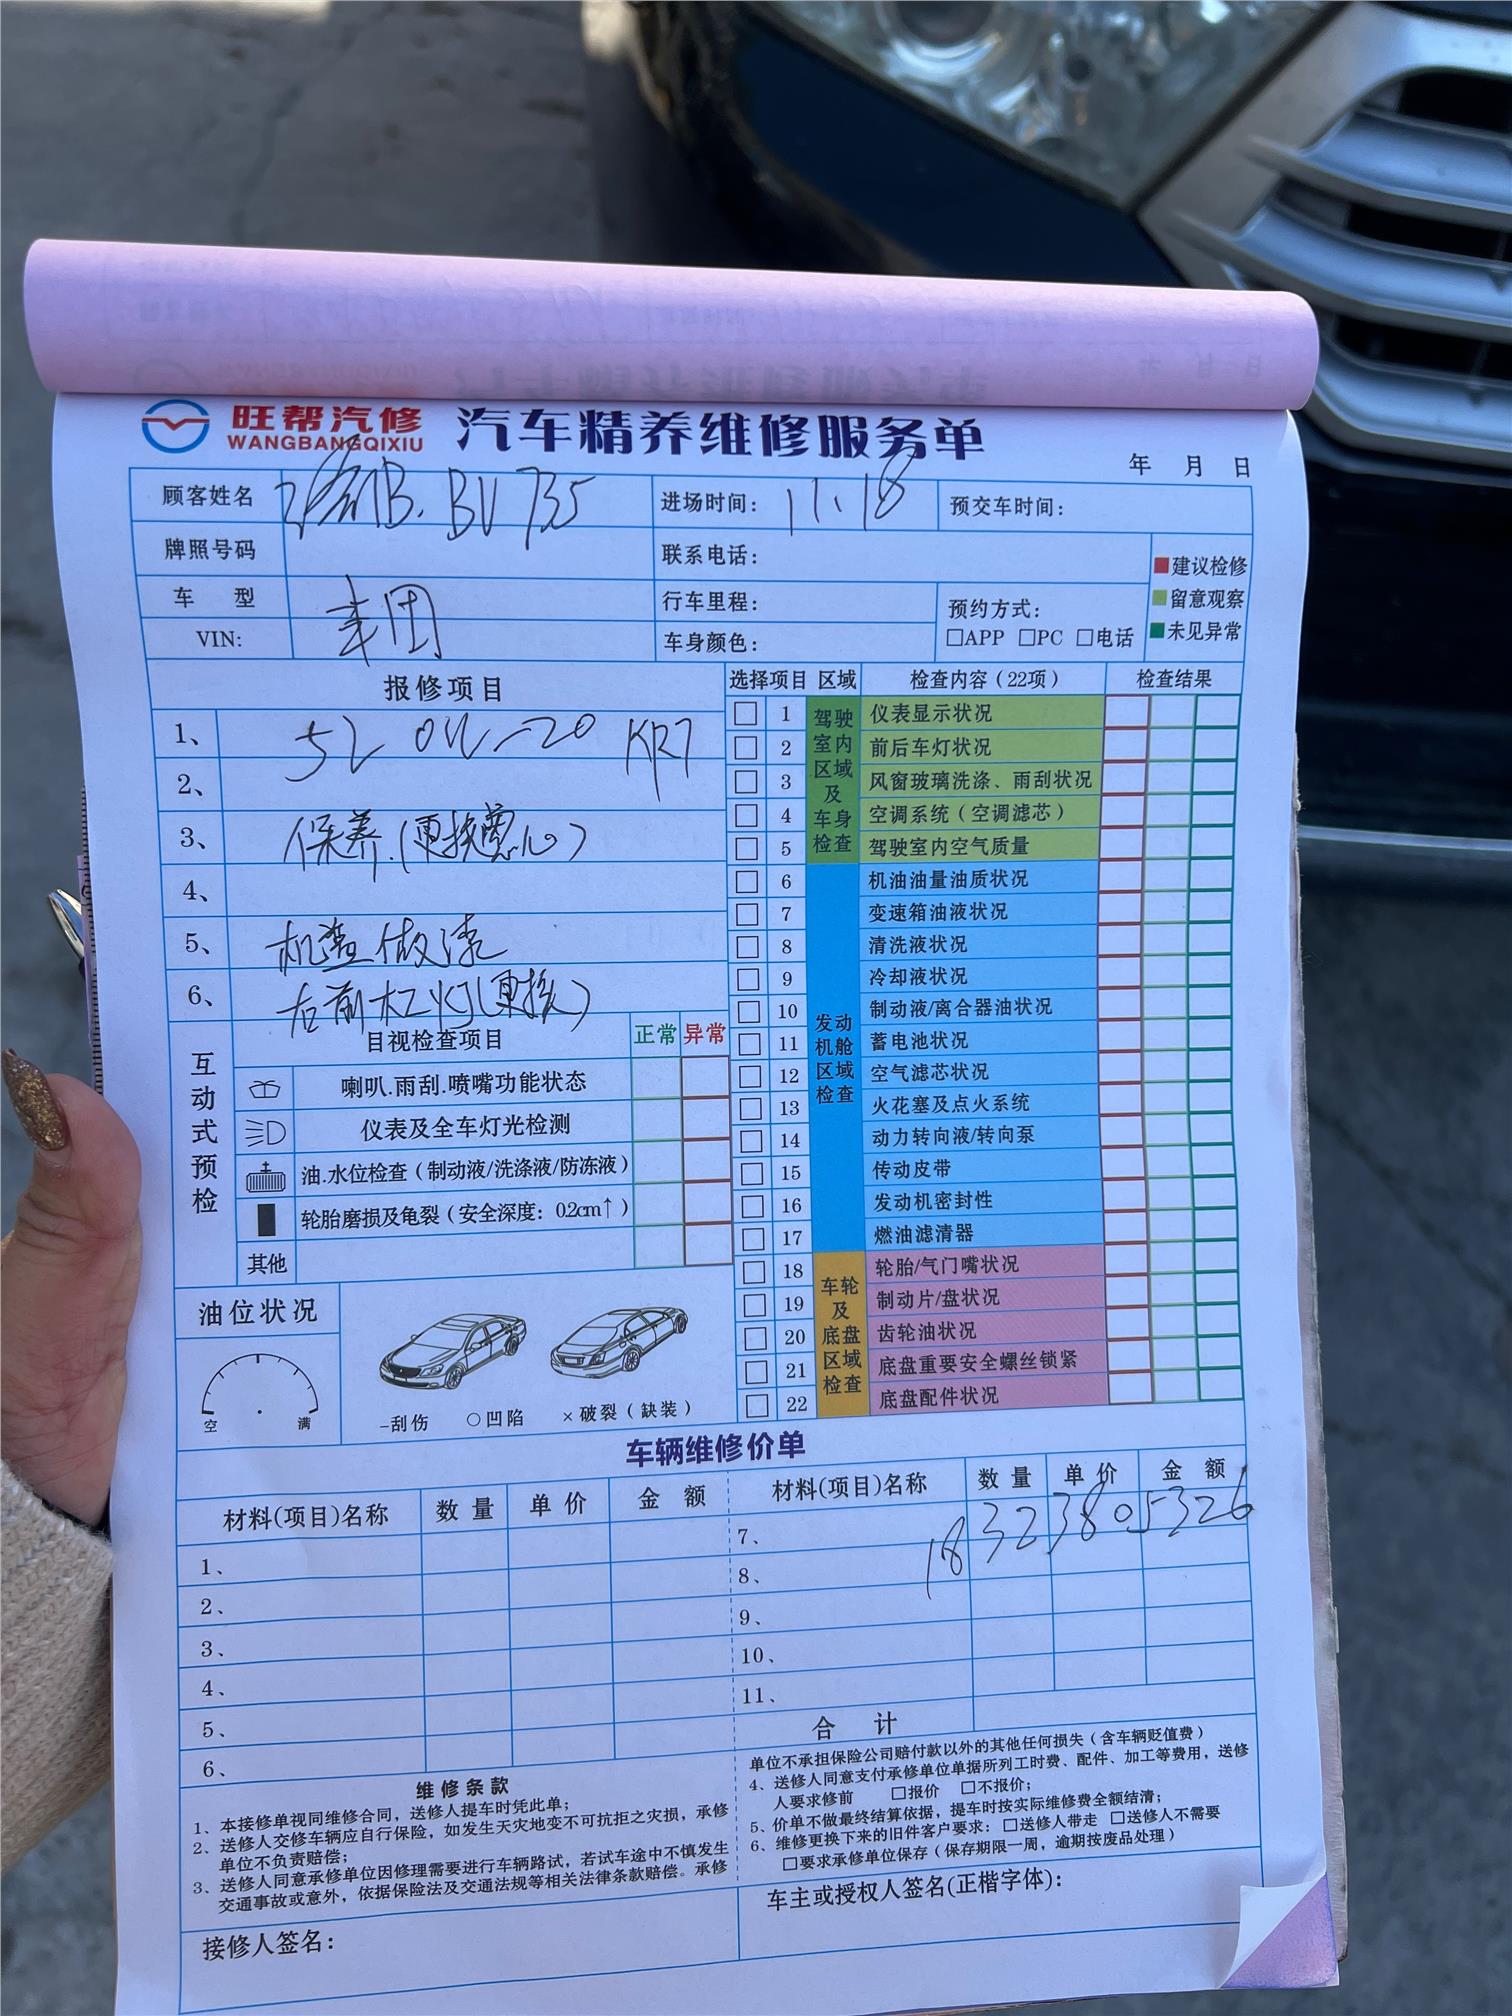 旺帮汽修
WANGBANGQIXIU
汽车精养维修服务单
年 月 日
顾客姓名 BV735
进场时间： 11.18
预交车时间：
牌照号码
联系电话：
建议检修
留意观察
未见异常
车 型 丰田
行车里程：
预约方式：
□APP □PC □电话
VIN:
车身颜色：
报修项目
1、 5L 0W-20 KR7
2、
3、 保养.(更换
4、
5、 机盖做漆
6、 右前杠灯(更换)
选择项目 区域 检查内容（22项） 检查结果
驾驶室内区域及车身检查
1 仪表显示状况
2 前后车灯状况
3 风窗玻璃洗涤、雨刮状况
4 空调系统（空调滤芯）
5 驾驶室内空气质量
发动机舱区域检查
6 机油油量油质状况
7 变速箱油液状况
8 清洗液状况
9 冷却液状况
10 制动液/离合器油状况
11 蓄电池状况
12 空气滤芯状况
13 火花塞及点火系统
14 动力转向液/转向泵
15 传动皮带
16 发动机密封性
17 燃油滤清器
车轮及底盘区域检查
18 轮胎/气门嘴状况
19 制动片/盘状况
20 齿轮油状况
21 底盘重要安全螺丝锁紧
22 底盘配件状况
互动式预检
目视检查项目 正常 异常
喇叭.雨刮.喷嘴功能状态
仪表及全车灯光检测
油.水位检查（制动液/洗涤液/防冻液）
轮胎磨损及龟裂（安全深度：0.2cm↑）
其他
油位状况
空 满
-刮伤 ○凹陷 ×破裂（缺装）
车辆维修价单
材料(项目)名称 数量 单价 金额
1、
2、
3、
4、
5、
6、
材料(项目)名称 数量 单价 金额
7、
18323805326
8、
9、
10、
11、
合 计
维修条款
1、本接修单视同维修合同，送修人提车时凭此单；
2、送修人交修车辆应自行保险，如发生天灾地变不可抗拒之灾损，承修
单位不负责赔偿；
3、送修人同意承修单位因修理需要进行车辆路试，若试车途中不慎发生
交通事故或意外，依据保险法及交通法规等相关法律条款赔偿。承修
单位不承担保险公司赔付款以外的其他任何损失（含车辆贬值费）
4、送修人同意支付承修单位单据所列工时费、配件、加工等费用，送修
人要求修前 □报价 □不报价；
5、价单不做最终结算依据，提车时按实际维修费全额结清；
6、维修更换下来的旧件客户要求：□送修人带走 □送修人不需要
□要求承修单位保存（保存期限一周，逾期按废品处理）
接修人签名：
车主或授权人签名(正楷字体)：